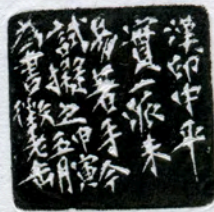 漢印中平
實一派未
易著手今
試擬之甲寅五月
為書徵老缶